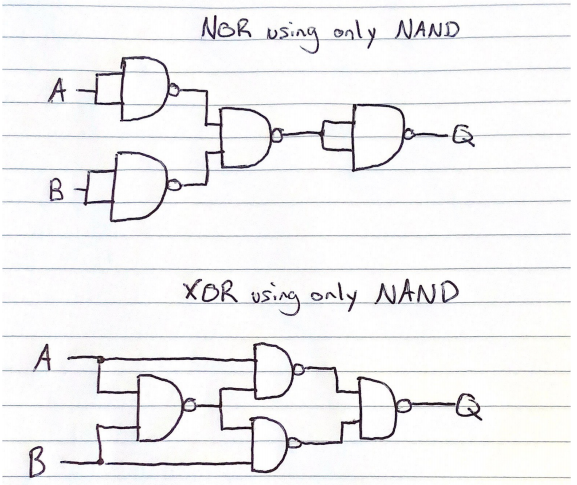 NOR using only NAND
A
B
Q
XOR using only NAND
A
B
Q